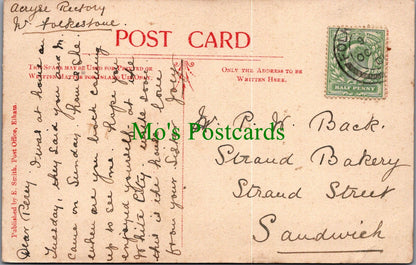 Acryse Rectory
Nr. Folkestone.
POST CARD
THIS SPACE MAY BE USED FOR PRINTED OR
WRITTEN MATTER FOR INLAND USE ONLY.
ONLY THE ADDRESS TO BE
WRITTEN HERE.
HALF PENNY
Published by E. Smith, Post Office, Elham.
Dear Percy I was at home on
Tuesday, they said you and
came on Sunday
when are you back
up to see me hope you
enjoyed yourself at the
White City
this is the
from your Sis
Mr. P. W. Back.
Strand Bakery
Strand Street
Sandwich
Mo's Postcards